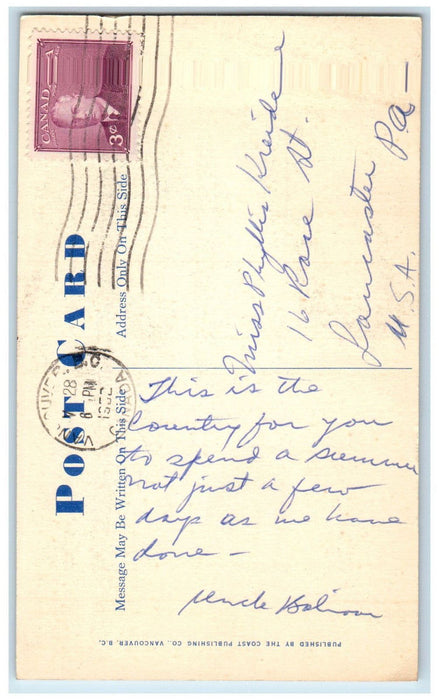 CANADA
3¢
POST CARD
Address Only On This Side
Message May Be Written On This Side
VANCOUVER, B.C.
28
8 PM
1952
CANADA
Miss Phyllis Kreider
16 Race St.
Lancaster Pa—
U.S.A.
This is the
Country for you
to spend a summer
not just a few
days as we have
done —
Uncle
PUBLISHED BY THE COAST PUBLISHING CO., VANCOUVER, B.C.